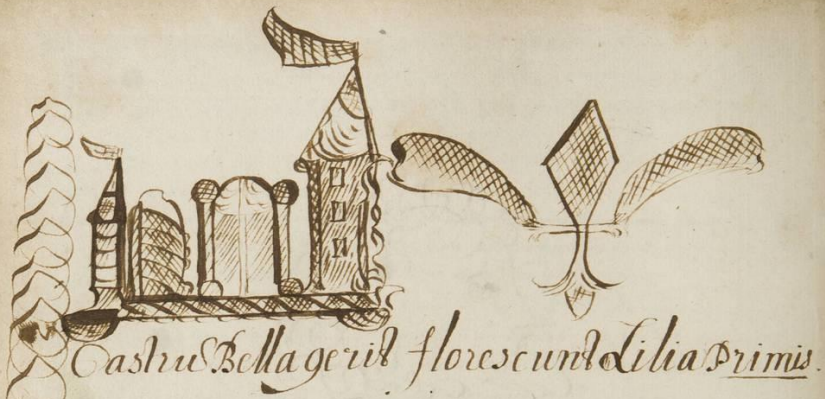 Castris Bella gerit florescunt Lilia Primis.